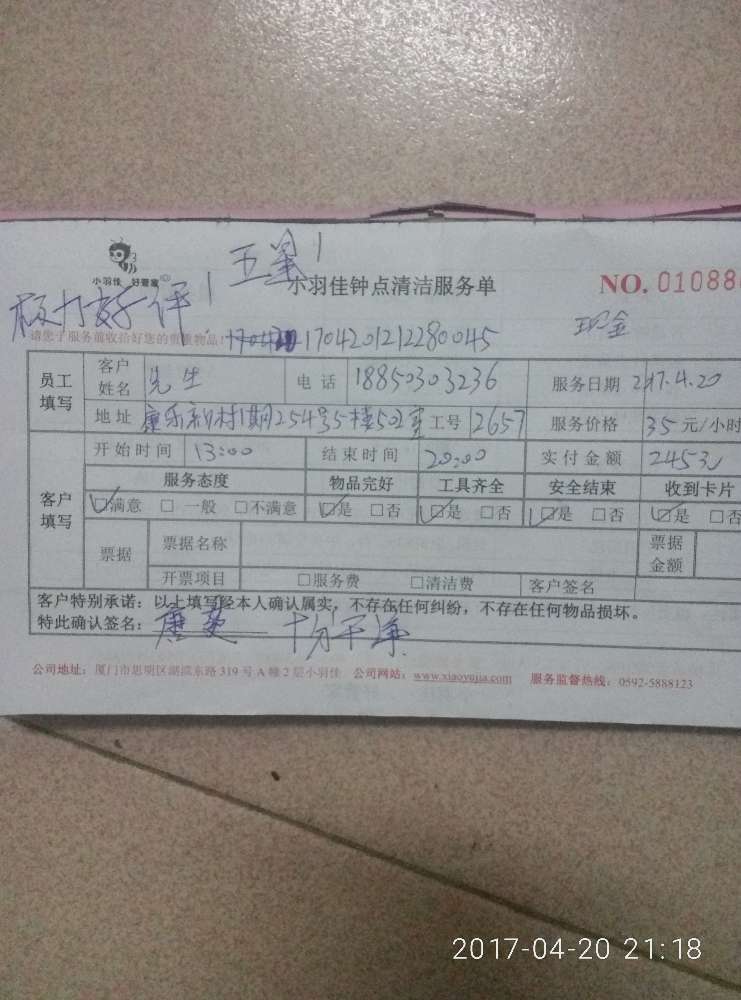 五星!
小羽佳 好管家
小羽佳钟点清洁服务单
NO. 01088
极力好评!
请您于服务前收拾好您的贵重物品!
1704201212280045
现金
员工填写
客户姓名 先生 电话 18850303236 服务日期 2017.4.20
地址 康乐新村1期254号5楼502室 工号 2657 服务价格 35元/小时
客户填写
开始时间 13:00 结束时间 20:00 实付金额 245元
服务态度 物品完好 工具齐全 安全结束 收到卡片
☑满意 □一般 □不满意 ☑是 □否 ☑是 □否 ☑是 □否 ☑是 □否
票据 票据名称 票据金额
开票项目 □服务费 □清洁费 客户签名
客户特别承诺:以上填写经本人确认属实,不存在任何纠纷,不存在任何物品损坏。
特此确认签名: 十分干净
公司地址:厦门市思明区湖滨东路319号A幢2层小羽佳 公司网站:www.xiaoyujia.com 服务监督热线:0592-5888123
2017-04-20 21:18